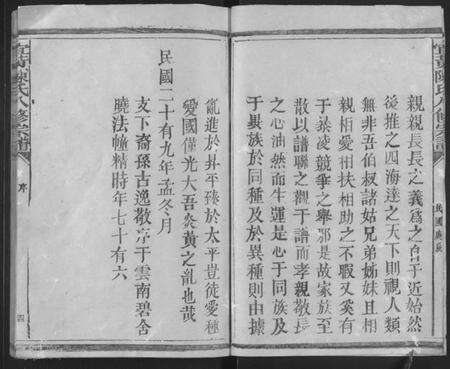 宜黃陳氏八修宗譜
民國庚辰
親親長長之義爲之合于近始然
後推之四海達之天下則視人類
無非吾伯叔諸姑兄弟姊妹且相
親相愛相扶相助之不暇又奚有
于暴凌競爭之舉耶是故家族至
散以譜聯之觀于譜而孝親敬長
之心油然而生運是心于同族及
于異族於同種及於異種則由據
亂進於升平臻於太平豈徒愛種
愛國僅光大吾炎黃之亂也哉
民國二十有九年孟冬月
支下裔孫古逸敬序于雲南碧舍
曉法幢精時年七十有六
宜黃陳氏八修宗譜
序
四